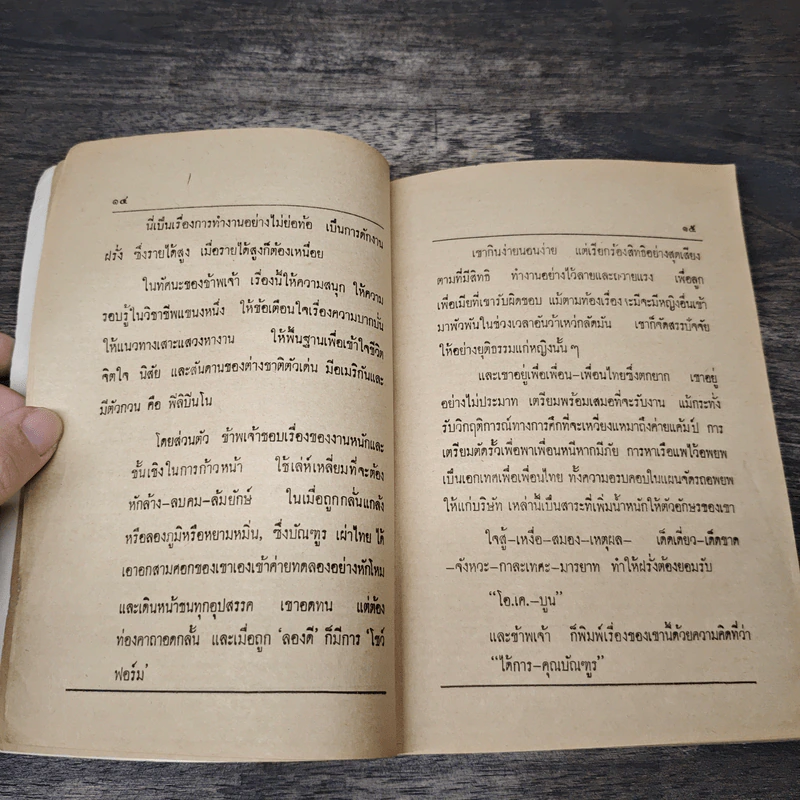 ๑๔
นี่เป็นเรื่องการทำงานอย่างไม่ย่อท้อ เป็นการดักงาน
ฝรั่ง ซึ่งรายได้สูง เมื่อรายได้สูงก็ต้องเหนื่อย
ในทัศนะของข้าพเจ้า เรื่องนี้ให้ความสนุก ให้ความ
รอบรู้ในวิชาชีพแขนงหนึ่ง ให้ข้อเตือนใจเรื่องความบากบั่น
ให้แนวทางเสาะแสวงหางาน ให้พื้นฐานเพื่อเข้าใจชีวิต
จิตใจ นิสัย และสันดานของต่างชาติตัวเด่น มีอเมริกันและ
มีตัวกวน คือ ฟิลิปปินโน
โดยส่วนตัว ข้าพเจ้าชอบเรื่องของงานหนักและ
ชั้นเชิงในการก้าวหน้า ใช้เล่ห์เหลี่ยมที่จะต้อง
หักล้าง-ลบคม-ล้มยักษ์ ในเมื่อถูกกลั่นแกล้ง
หรือลองภูมิหรือหยามหมิ่น, ซึ่งบัณฑูร เผ่าไทย ได้
เอาอกสามศอกของเขาเองเข้าค่ายทดลองอย่างหักโหม
และเดินหน้าชนทุกอุปสรรค เขาอดทน แต่ต้อง
ท่องคาถาอดกลั้น และเมื่อถูก 'ลองดี' ก็มีการ 'โชว์
ฟอร์ม'
๑๕
เขากินง่ายนอนง่าย แต่เรียกร้องสิทธิอย่างสุดเสียง
ตามที่มีสิทธิ ทำงานอย่างไว้ลายและถวายแรง เพื่อลูก
เพื่อเมียที่เขารับผิดชอบ แม้ตามท้องเรื่องจะมีจะมีหญิงอื่นเข้า
มาพัวพันในช่วงเวลาอันว้าเหว่กลัดมัน เขาก็จัดสรรปัจจัย
ให้อย่างยุติธรรมแก่หญิงนั้น ๆ
และเขาอยู่เพื่อเพื่อน-เพื่อนไทยซึ่งตกยาก เขาอยู่
อย่างไม่ประมาท เตรียมพร้อมเสมอที่จะรับงาน แม้กระทั่ง
รับวิกฤติการณ์ทางการศึกที่จะเหวี่ยงแหมาถึงค่ายแค้มป์ การ
เตรียมตัดรั้วเพื่อพาเพื่อนหนีหากมีภัย การหาเรือแพไว้อพยพ
เป็นเอกเทศเพื่อเพื่อนไทย ทั้งความอรบคอบในแผนจัดรถอพยพ
ให้แก่บริษัท เหล่านี้เป็นสาระที่เพิ่มน้ำหนักให้ตัวอักษรของเขา
ใจสู้-เหงื่อ-สมอง-เหตุผล- เด็ดเดี่ยว-เด็ดขาด
-จังหวะ-กาละเทศะ-มารยาท ทำให้ฝรั่งต้องยอมรับ
"โอ.เค.-บูน"
และข้าพเจ้า ก็พิมพ์เรื่องของเขานี้ด้วยความคิดที่ว่า
"ได้การ-คุณบัณฑูร"